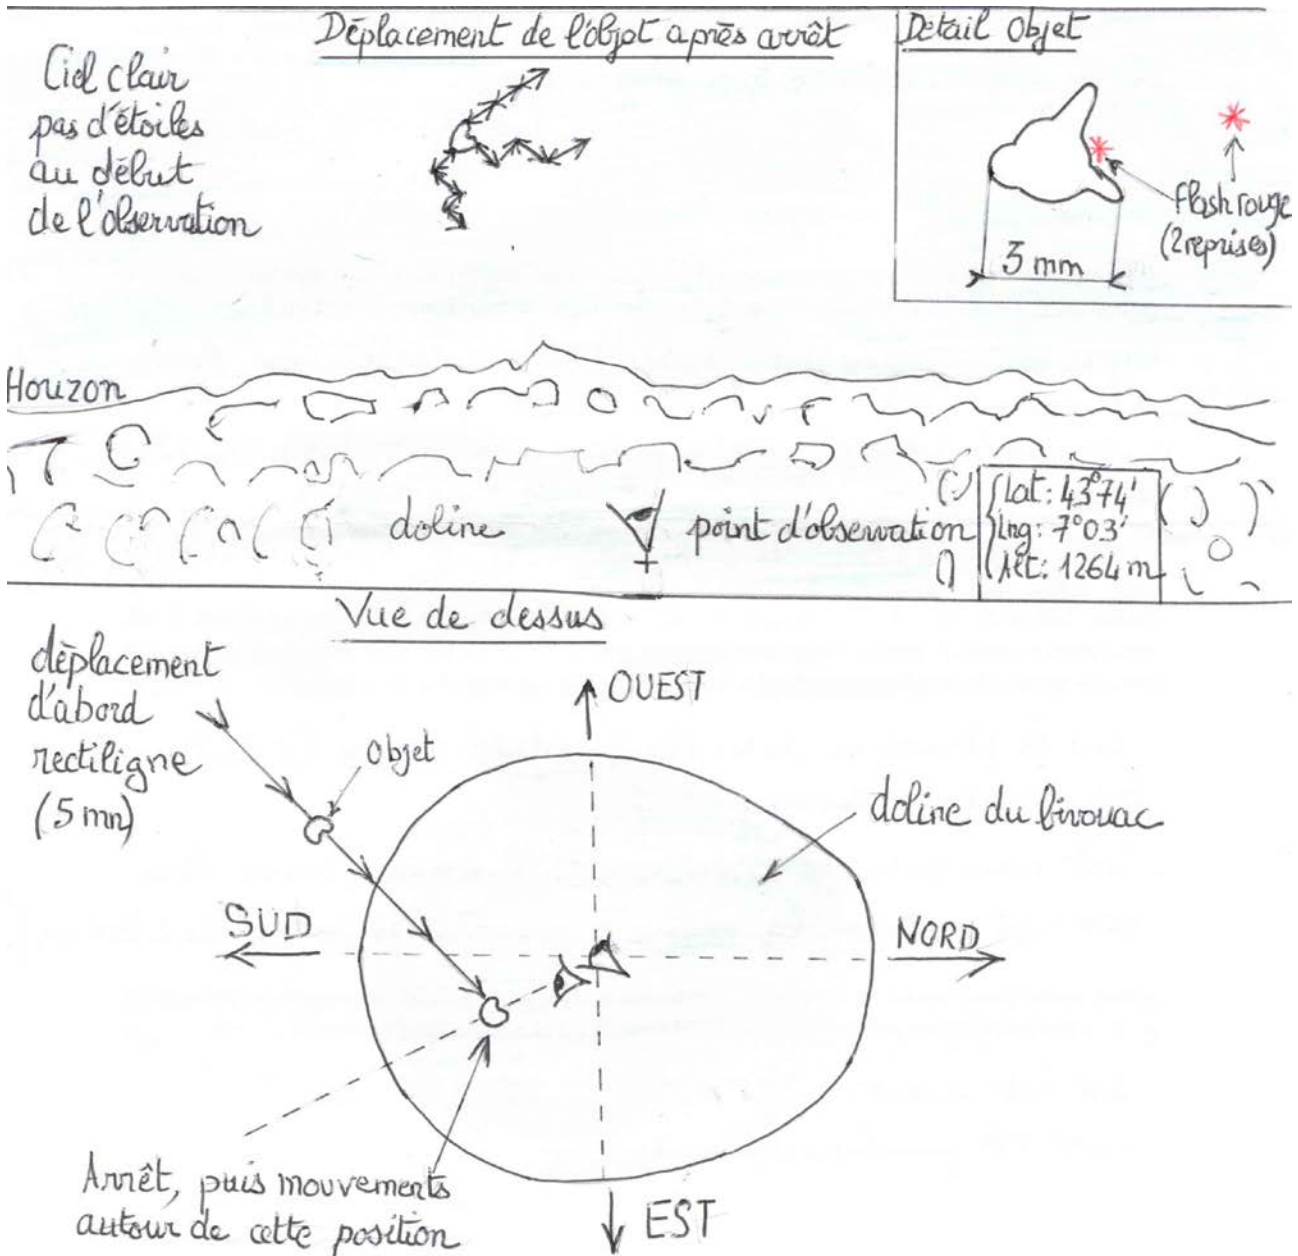 Déplacement de l'objet après arrêt
Détail Objet
Ciel clair
pas d'étoiles
au début
de l'observation
flash rouge
(2 reprises)
3 mm
Horizon
doline
point d'observation
Lat: 43°74'
Lng: 7°03'
Alt: 1264 m
Vue de dessus
déplacement
d'abord
rectiligne
(5 mn)
Objet
OUEST
doline du bivouac
SUD
NORD
Arrêt, puis mouvements
autour de cette position
EST